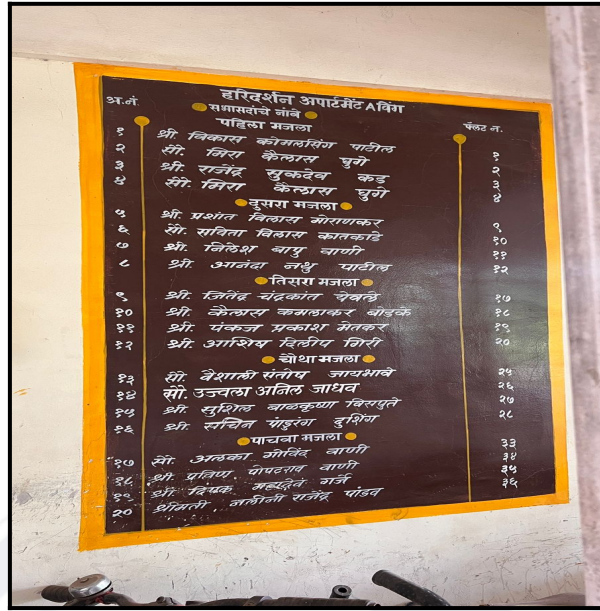 हरिदर्शन अपार्टमेंट A विंग
अ.नं. सभासदांचे नांवे फ्लॅट न.
पहिला मजला
१ श्री विकास कोमलसिंग पाटील १
२ सौ. मिरा कैलास घुगे २
३ श्री. राजेंद्र सुकदेव कड ३
४ सौ. मिरा कैलास घुगे ४
दुसरा मजला
५ श्री. प्रशांत विलास मोराणकर ९
६ सौ. सविता विलास कातकाडे १०
७ श्री. निलेश बापु वाणी ११
८ श्री. आनंदा नथु पाटील १२
तिसरा मजला
९ श्री. जितेंद्र चंद्रकांत येवले १७
१० श्री. कैलास कमलाकर बोडके १८
११ श्री. पंकज प्रकाश मेतकर १९
१२ श्री. आशिष दिलीप गिरी २०
चौथा मजला
१३ सौ. वैशाली संतोष जायभावे २५
१४ सौ. उज्वला अनिल जाधव २६
१५ श्री. सुशिल बाळकृष्णा विसपुते २७
१६ श्री. सचिन पांडुरंग दुशिंग २८
पाचवा मजला
१७ सौ. अलका गोविंद वाणी ३३
१८ श्री. प्रविण पोपटराव वाणी ३४
१९ श्री. दिपक महादेव गर्जे ३५
२० श्रीमती. नलीनी राजेंद्र पांडव ३६